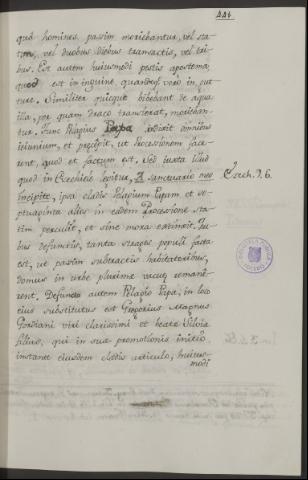 441.
quod homines, passim moriebantur, vel sta-
tim, vel duobus diebus transactis, vel tri-
bus. Est autem huiusmodi pestis apostema,
quod est in inguine, quandoq3 vero in gut-
ture. Similiter quicquid bibebant de aqua
illa, per quam draco transierat, morieban-
tur. Tunc Pelagius Papa
ieiunium, et præcepit, ut Processionem face-
rent, quod et factum est. Sed iuxta illud
quod in Ezechiele legitur, A sanctuario meo Ezech. 9. 6.
incipite, ipsa clades Pelagium Papam et se-
ptuaginta alios in eadem Processione sta-
tim perculit, et sine mora extinxit. Qui-
bus defunctis, tanta strages populi facta
est, ut passim subtractis habitatoribus,
domus in urbe plurimæ vacuæ remane-
rent. Defuncto autem Pelagio Papa, in loco
eius substitutus est Gregorius Magnus
Gordiani viri clarissimi et beatæ Silviæ
filius, qui in suæ promotionis initio
instante eiusdem cladis articulo, huius-
modi